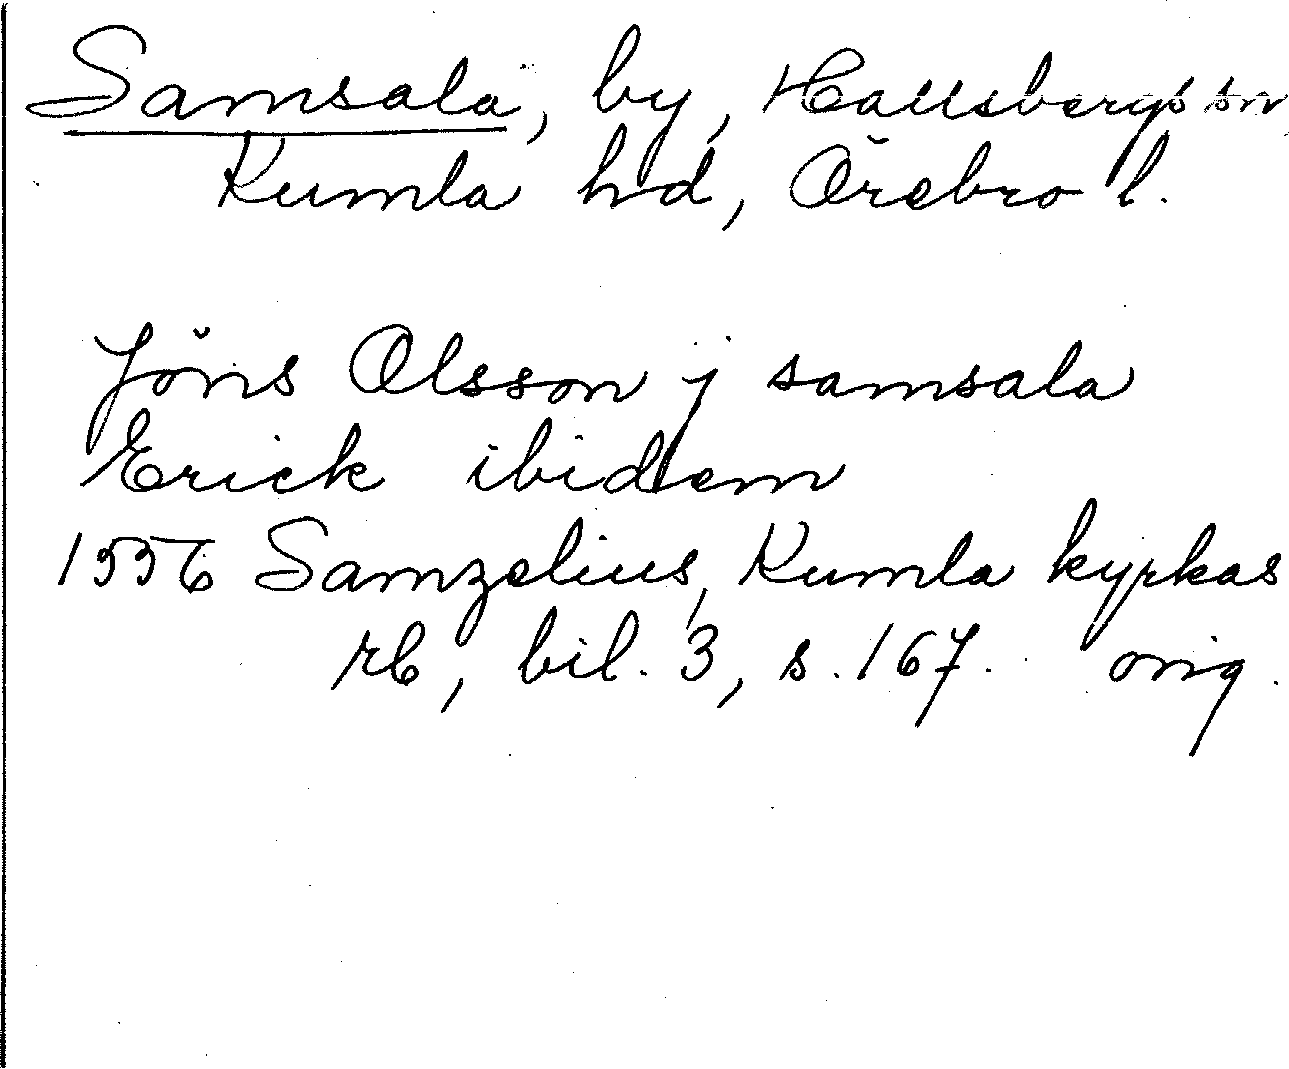 Samsala, by, Hallsbergs sn
Kumla hd, Örebro l.
Jöns Olsson j samsala
Erick ibidem
1556 Samzelius, Kumla kyrkas
rb, bil. 3, s. 167. orig.